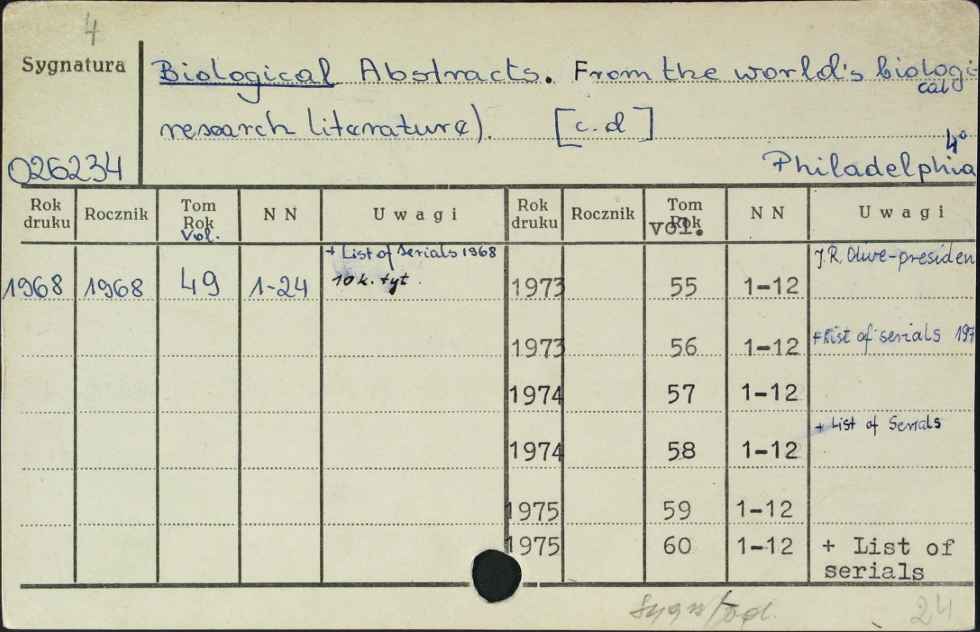 4
Sygnatura
Biological Abstracts. From the world's biologi
cal
research literature). [c.d]
4°
026234
Philadelphia
Rok druku Rocznik Tom Rok Vol. N N Uwagi Rok druku Rocznik Tom Rok vol. N N Uwagi
1968 1968 49 1-24 + List of Serials 1968
10 k. tyt.
1973 55 1-12 J.R. Olive-presiden
1973 56 1-12 + List of serials 197
1974 57 1-12
1974 58 1-12 + List of Serials
1975 59 1-12
1975 60 1-12 + List of
serials
24